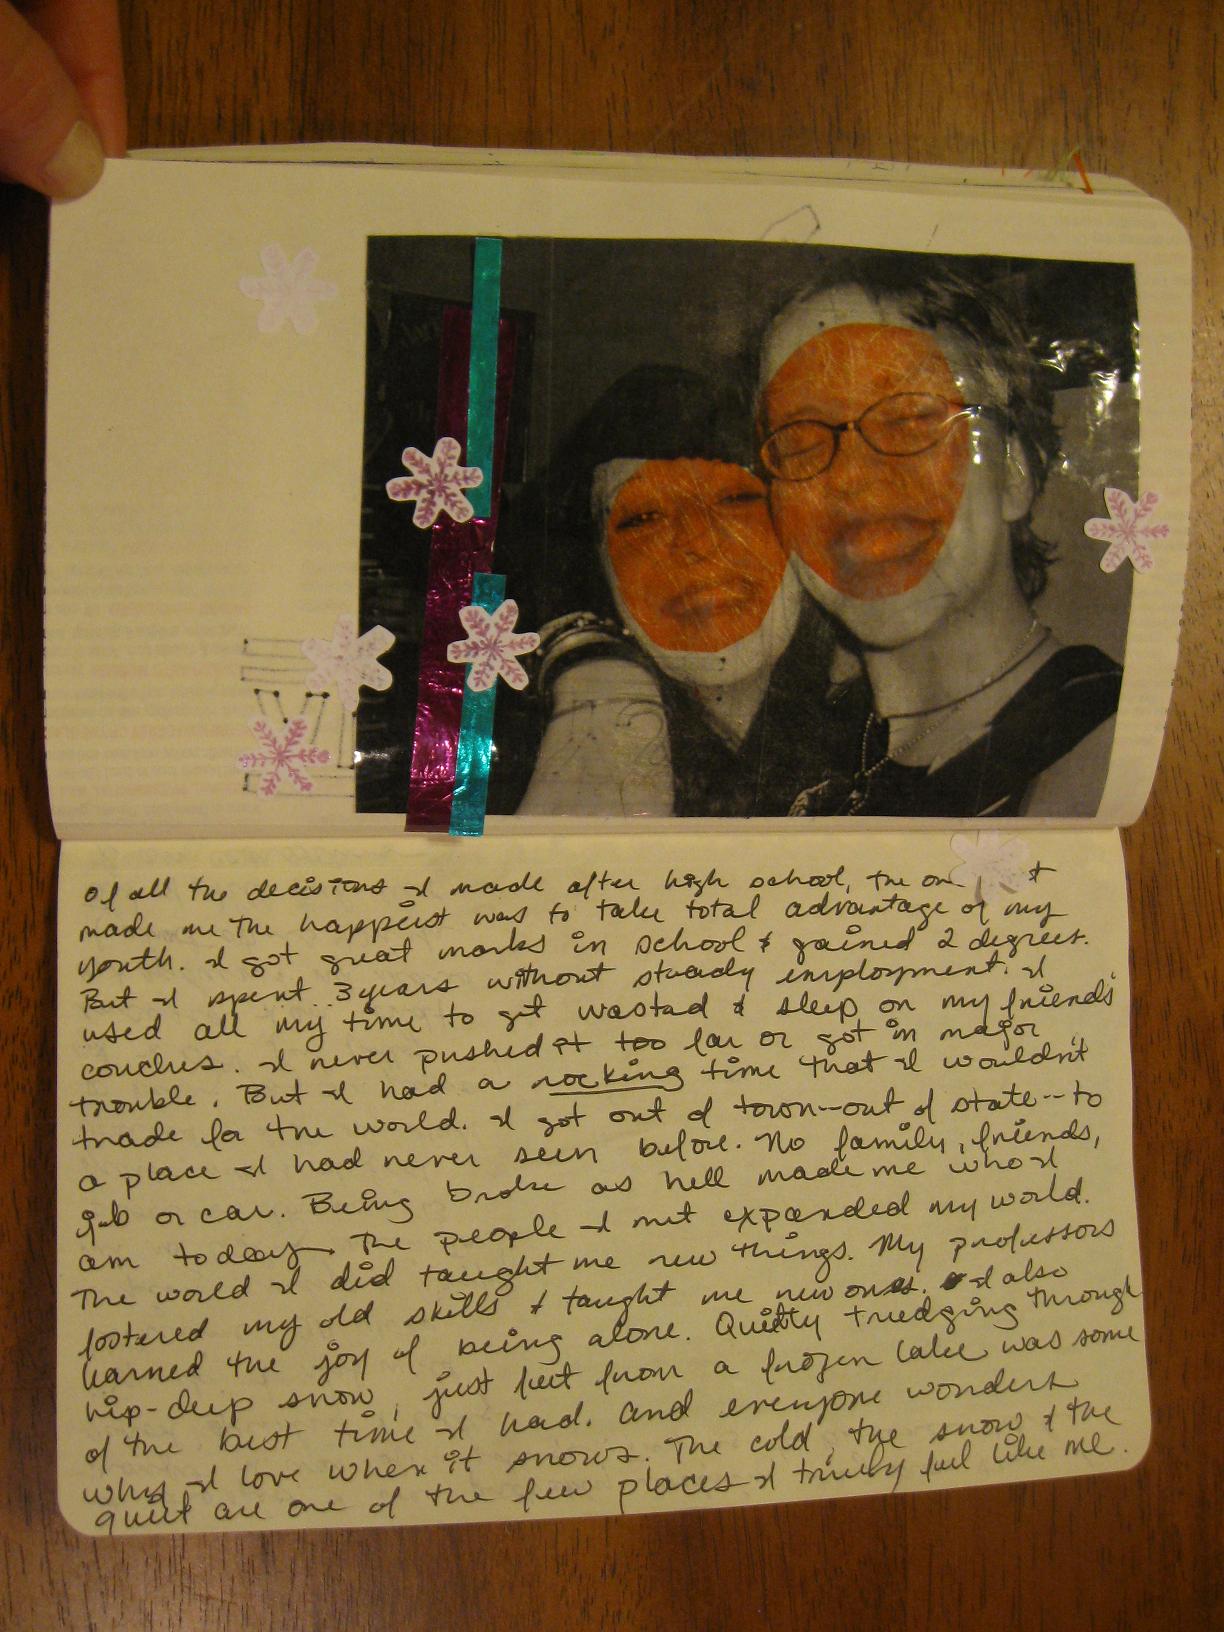 Of all the decisions I made after high school, the
made me the happiest was to take total advantage of my
youth. I got great marks in school & gained 2 degrees.
But I spent 3 years without steady employment. I
used all my time to get wastad & sleep on my friends'
couches. I never pushed it too far or got in major
trouble. But I had a rocking time that I wouldn't
trade for the world. I got out of town--out of state--to
a place I had never seen before. No family, friends,
job or car. Being broke as hell made me who I
am today. The people I met expanded my world.
The world I did taught me new things. My professors
fostered my old skills & taught me new ones. I also
learned the joy of being alone. Quietly trudging through
hip-deep snow, just feet from a frozen lake was some
of the best time I had. And everyone wonders
why I love when it snows. The cold, the snow & the
quiet are one of the few places I truely feel like me.